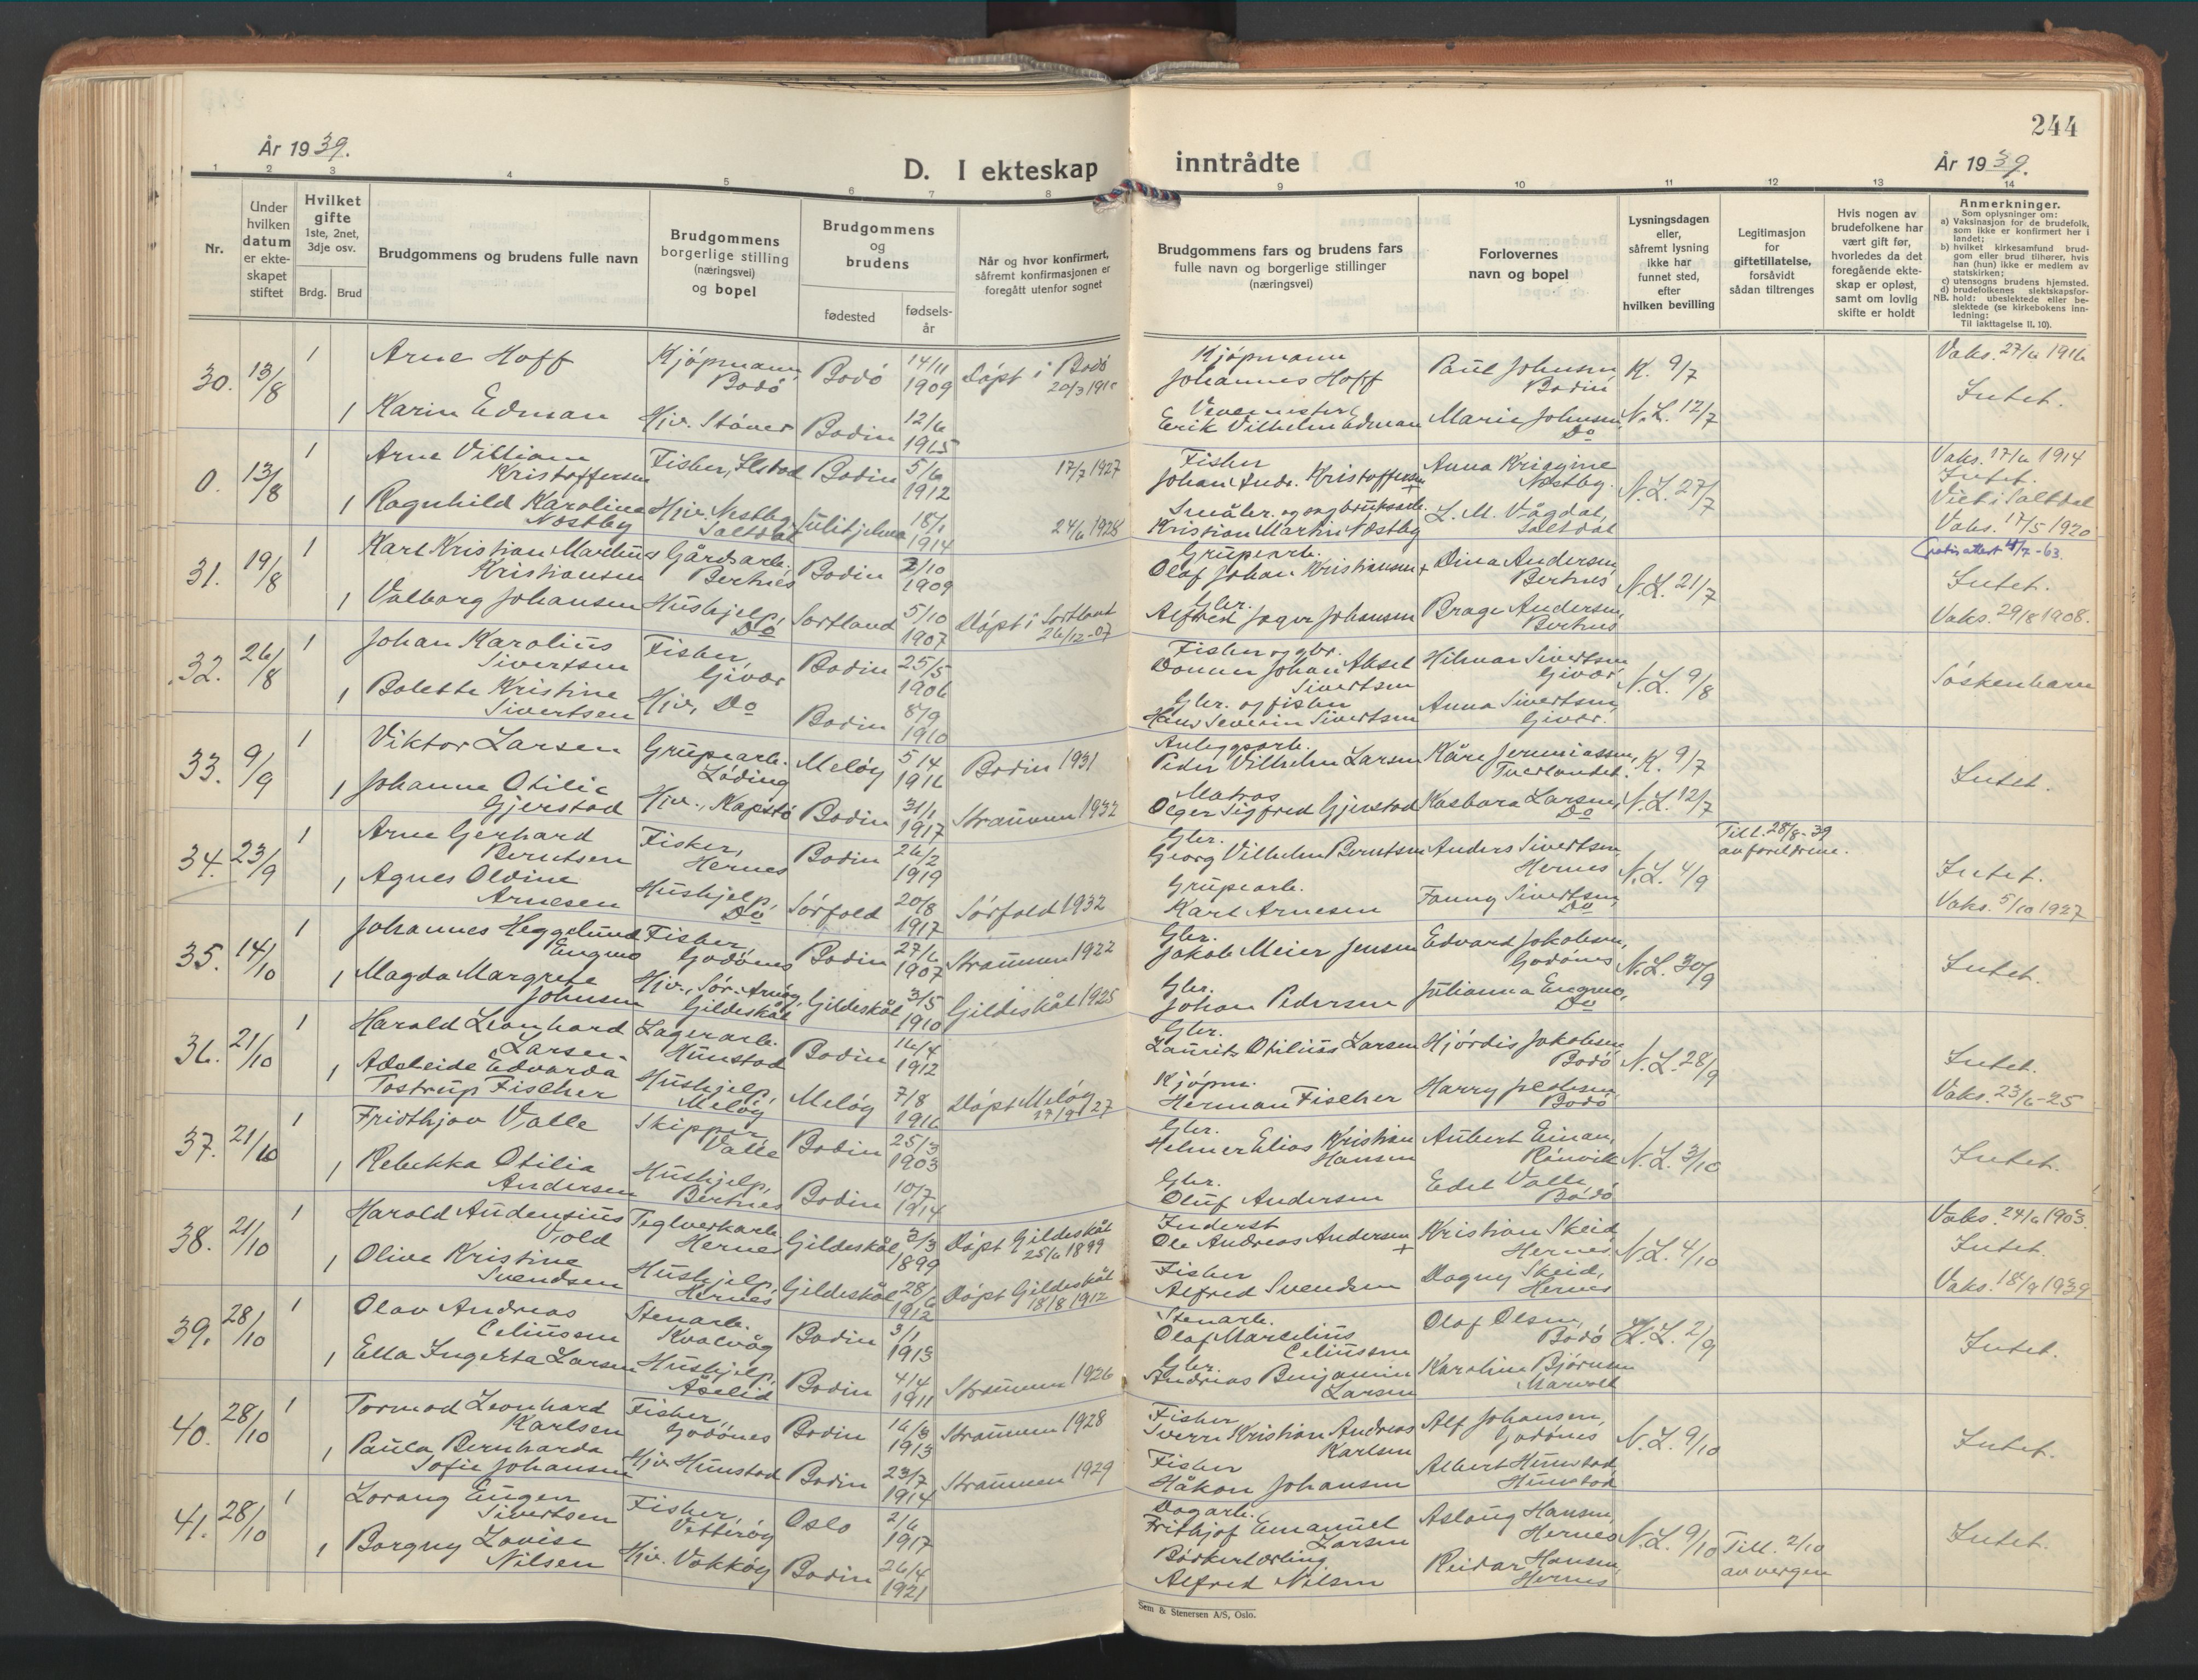 244
År 1939.
D. I ekteskap inntrådte
År 1939.
1 2 3 4 5 6 7 8 9 10 11 12 13 14
Nr.
Under hvilken datum er ekteskapet stiftet
Hvilket gifte 1ste, 2net, 3dje osv.
Brdg. Brud
Brudgommens og brudens fulle navn
Brudgommens borgerlige stilling (næringsvei) og bopel
Brudgommens og brudens
fødested
fødsels-år
Når og hvor konfirmert, såfremt konfirmasjonen er foregått utenfor sognet
Brudgommens fars og brudens fars fulle navn og borgerlige stillinger (næringsvei)
Forlovernes navn og bopel
Lysningsdagen eller, såfremt lysning ikke har funnet sted, efter hvilken bevilling
Legitimasjon for giftetillatelse, forsåvidt sådan tiltrenges
Hvis nogen av brudefolkene har vært gift før, hvorledes da det foregående ekteskap er opløst, samt om lovlig skifte er holdt
Anmerkninger.
Som oplysninger om:
a) Vaksinasjon for de brudefolk, som ikke er konfirmert her i landet;
b) hvilket kirkesamfund brudgom eller brud tilhører, hvis han (hun) ikke er medlem av statskirken;
c) utensogns brudens hjemsted.
d) brudefolkenes slektskapsforhold: ubeslektede eller beslektede (se kirkebokens innledning:
NB. Til iakttagelse II, 10).
30. 13/8 1 Arne Hoff Kjøpmann, Bodö Bodö 14/11 1909 Döpt i Bodö Kjøpmann Johannes Hoff Paul Johnsen, Bodin K. 9/7 Vaks. 27/6 1916
1 Karin Edman Hjv. Støver Bodin 12/6 1915 Erik Vilhelm Edman Marie Johnsen, Do N.L. 12/7 Intet.
0. 13/8 1 Arne Villiam Kristoffersen Fisker, Ilstad Bodin 5/6 1912 17/7 1927 Fisker Johan Andr. Kristoffersen + Anna Næstby. N.L. 27/7 Vaks. 17/6 1914 Intet. Viet i Saltdal
1 Ragnhild Karoline Næstby Hjv. Nestby, Saltdal Sulitjelma 18/1 1914 24/6 1928 Småbr. og Kristian Martin Næstby L. M. Vågdal, Saltdal Vaks. 17/5 1920
31. 19/8 1 Karl Kristian Martinus Kristiansen Gårdsarb., Bertnes Bodin 2/10 1909 Grubearb. Olaf Johan Kristiansen + Dina Andersen, Bertnes N.L. 21/7 4/7-63. Intet.
1 Valborg Johansen Hushjelp, Do Sortland 5/10 1907 Döpt i Sortland 26/12-07 Gbr. Alfred Johansen Brage Andersen, Bertnes Vaks. 29/8 1908.
32. 26/8 1 Johan Karolius Sivertsen Fisker, Givær Bodin 25/5 1906 Fisker og gbr. Johan Aksel Sivertsen Hilmar Sivertsen, Givær N.L. 9/8 Søskenbarn
1 Bolette Kristine Sivertsen Hjv, Do Bodin 8/9 1910 Gbr. og fisker Hans Severin Sivertsen Anna Sivertsen, Givær.
33. 9/9 1 Viktor Larsen Grubearb. Löding Meløy 5/4 1916 Bodin 1931 Anleggsarb. Peder Vilhelm Larsen Kåre Jeremiassen, Tverlandet. K. 9/7 Intet.
1 Johanne Otilie Gjerstad Hjv., Kapstö Bodin 31/1 1917 Straumen 1932 Matros Olger Sigfred Gjerstad Kasbara Larsen, Do N.L. 12/7
34. 23/9 1 Arne Gerhard Berntsen Fisker, Hernes Bodin 26/2 1919 Gbr. Georg Vilhelm Berntsen Anders Sivertsen, Hernes N.L. 4/9 Till. 28/8-39 av foreldrene. Intet.
1 Agnes Oldine Arnesen Hushjelp, Do Sørfold 20/8 1917 Sørfold 1932 Grubearb. Karl Arnesen Fanny Sivertsen, Do Vaks. 5/10 1927
35. 14/10 1 Johannes Heggelund Engmo Fisker, Godönes Bodin 27/6 1907 Straumen 1922 Gbr. Jakob Meier Jensen Edvard Jakobsen, Godönes N.L. 30/9 Intet.
1 Magda Margrete Johnsen Hjv., Sør-Arnøy, Gildeskål Gildeskål 3/5 1910 Gildeskål 1925 Gbr. Johan Pedersen Julianna Engmo, Do
36. 21/10 1 Harald Leonhard Larsen Lagerarb. Hunstad Bodin 16/4 1912 Gbr. Laurits Otilius Larsen Hjördis Jakobsen, Bodö N.L. 28/9 Intet.
1 Adeleide Edvarda Tostrup Fischer Hushjelp, Meløy Meløy 7/8 1916 Döpt Meløy Kjøpm. Herman Fischer Harry Jakobsen, Bodö Vaks. 23/6-25
37. 21/10 1 Fridthjov Valle Skipper, Valle Bodin 25/3 1903 Gbr. Helmer Elias Kristian Hansen Aubert Einan, Rönvik N.L. 3/10 Intet.
1 Rebekka Otilia Andersen Hushjelp, Bertnes Bodin 10/7 1914 Gbr. Oluf Andersen Edel Valle, Bodö
38. 21/10 1 Harald Audensius Vold Teglverkarb. Hernes Gildeskål 3/3 1899 Döpt Gildeskål 25/6 1899 Inderst Ole Andreas Andersen + Kristian Skeid, Hernes N.L. 4/10 Vaks. 24/6 1903. Intet.
1 Olive Kristine Svendsen Hushjelp, Hernes Gildeskål 28/6 1912 Döpt Gildeskål 18/8 1912 Fisker Alfred Svendsen Dagny Skeid, Hernes Vaks. 18/9 1939
39. 28/10 1 Olav Andreas Celiussen Stenarb. Kvalvåg Bodin 3/1 1913 Stenarb. Olaf Marselius Celiussen Olaf Olsen, Bodö N.L. 2/9 Intet.
1 Ella Ingerta Larsen Hushjelp, Åselid Bodin 4/4 1911 Straumen 1926 Gbr. Andreas Benjamin Larsen Karoline Björnsen
40. 28/10 1 Tormod Leonhard Karlsen Fisker, Godönes Bodin 16/3 1913 Straumen 1928 Fisker Kristian Andreas Karlsen Alf Johansen, Godönes N.L. 9/10 Intet.
1 Paula Bernharda Sofie Johansen Hjv Hunstad Bodin 23/7 1914 Straumen 1929 Fisker Håkon Johansen Albert Hunstad, Hunstad
41. 28/10 1 Lorang Eugen Sivertsen Fisker, Vetteröy Oslo 2/6 1917 Dagarb. Frithjof Emanuel Larsen Aslaug Hansen, Hernes N.L. 9/10 Till. 2/10 av vergen Intet.
1 Borgny Lovise Nilsen Hjv. Vokköy Bodin 26/4 1921 Alfred Nilsen Reidar Hansen, Hernes
Sem & Stenersen A/S, Oslo.